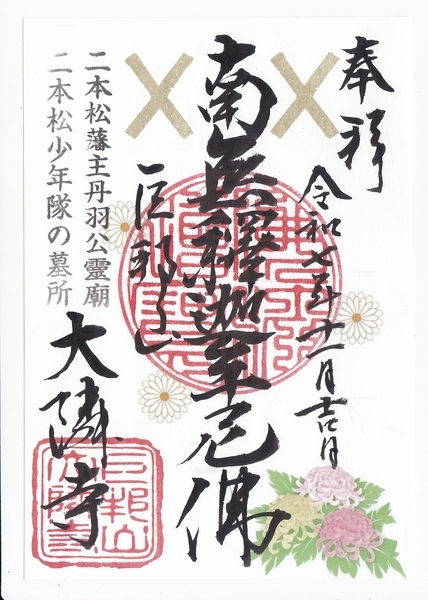 奉拝
令和七年十一月吉日
南無釋迦牟尼佛
巨邦山
大隣寺
二本松藩主丹羽公靈廟
二本松少年隊の墓所